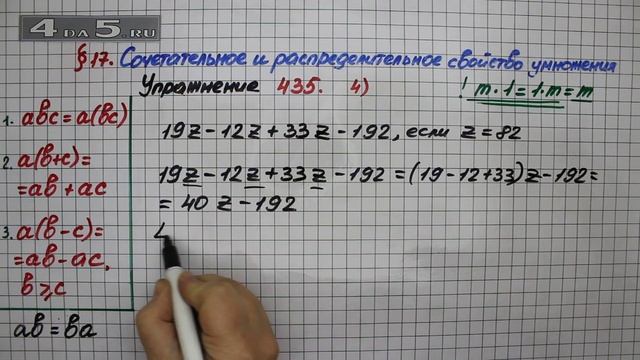 4 DA 5.RU
§17. Сочетательное и распределительное свойство умножения
Упражнение 435. 4)
! m·1=1·m=m
1. abc=a(bc)
2. a(b+c)=
=ab+ac
3. a(b-c)=
=ab-ac,
b⩾c
ab=ba
19z-12z+33z-192, если z=82
19z-12z+33z-192=(19-12+33)z-192=
=40z-192